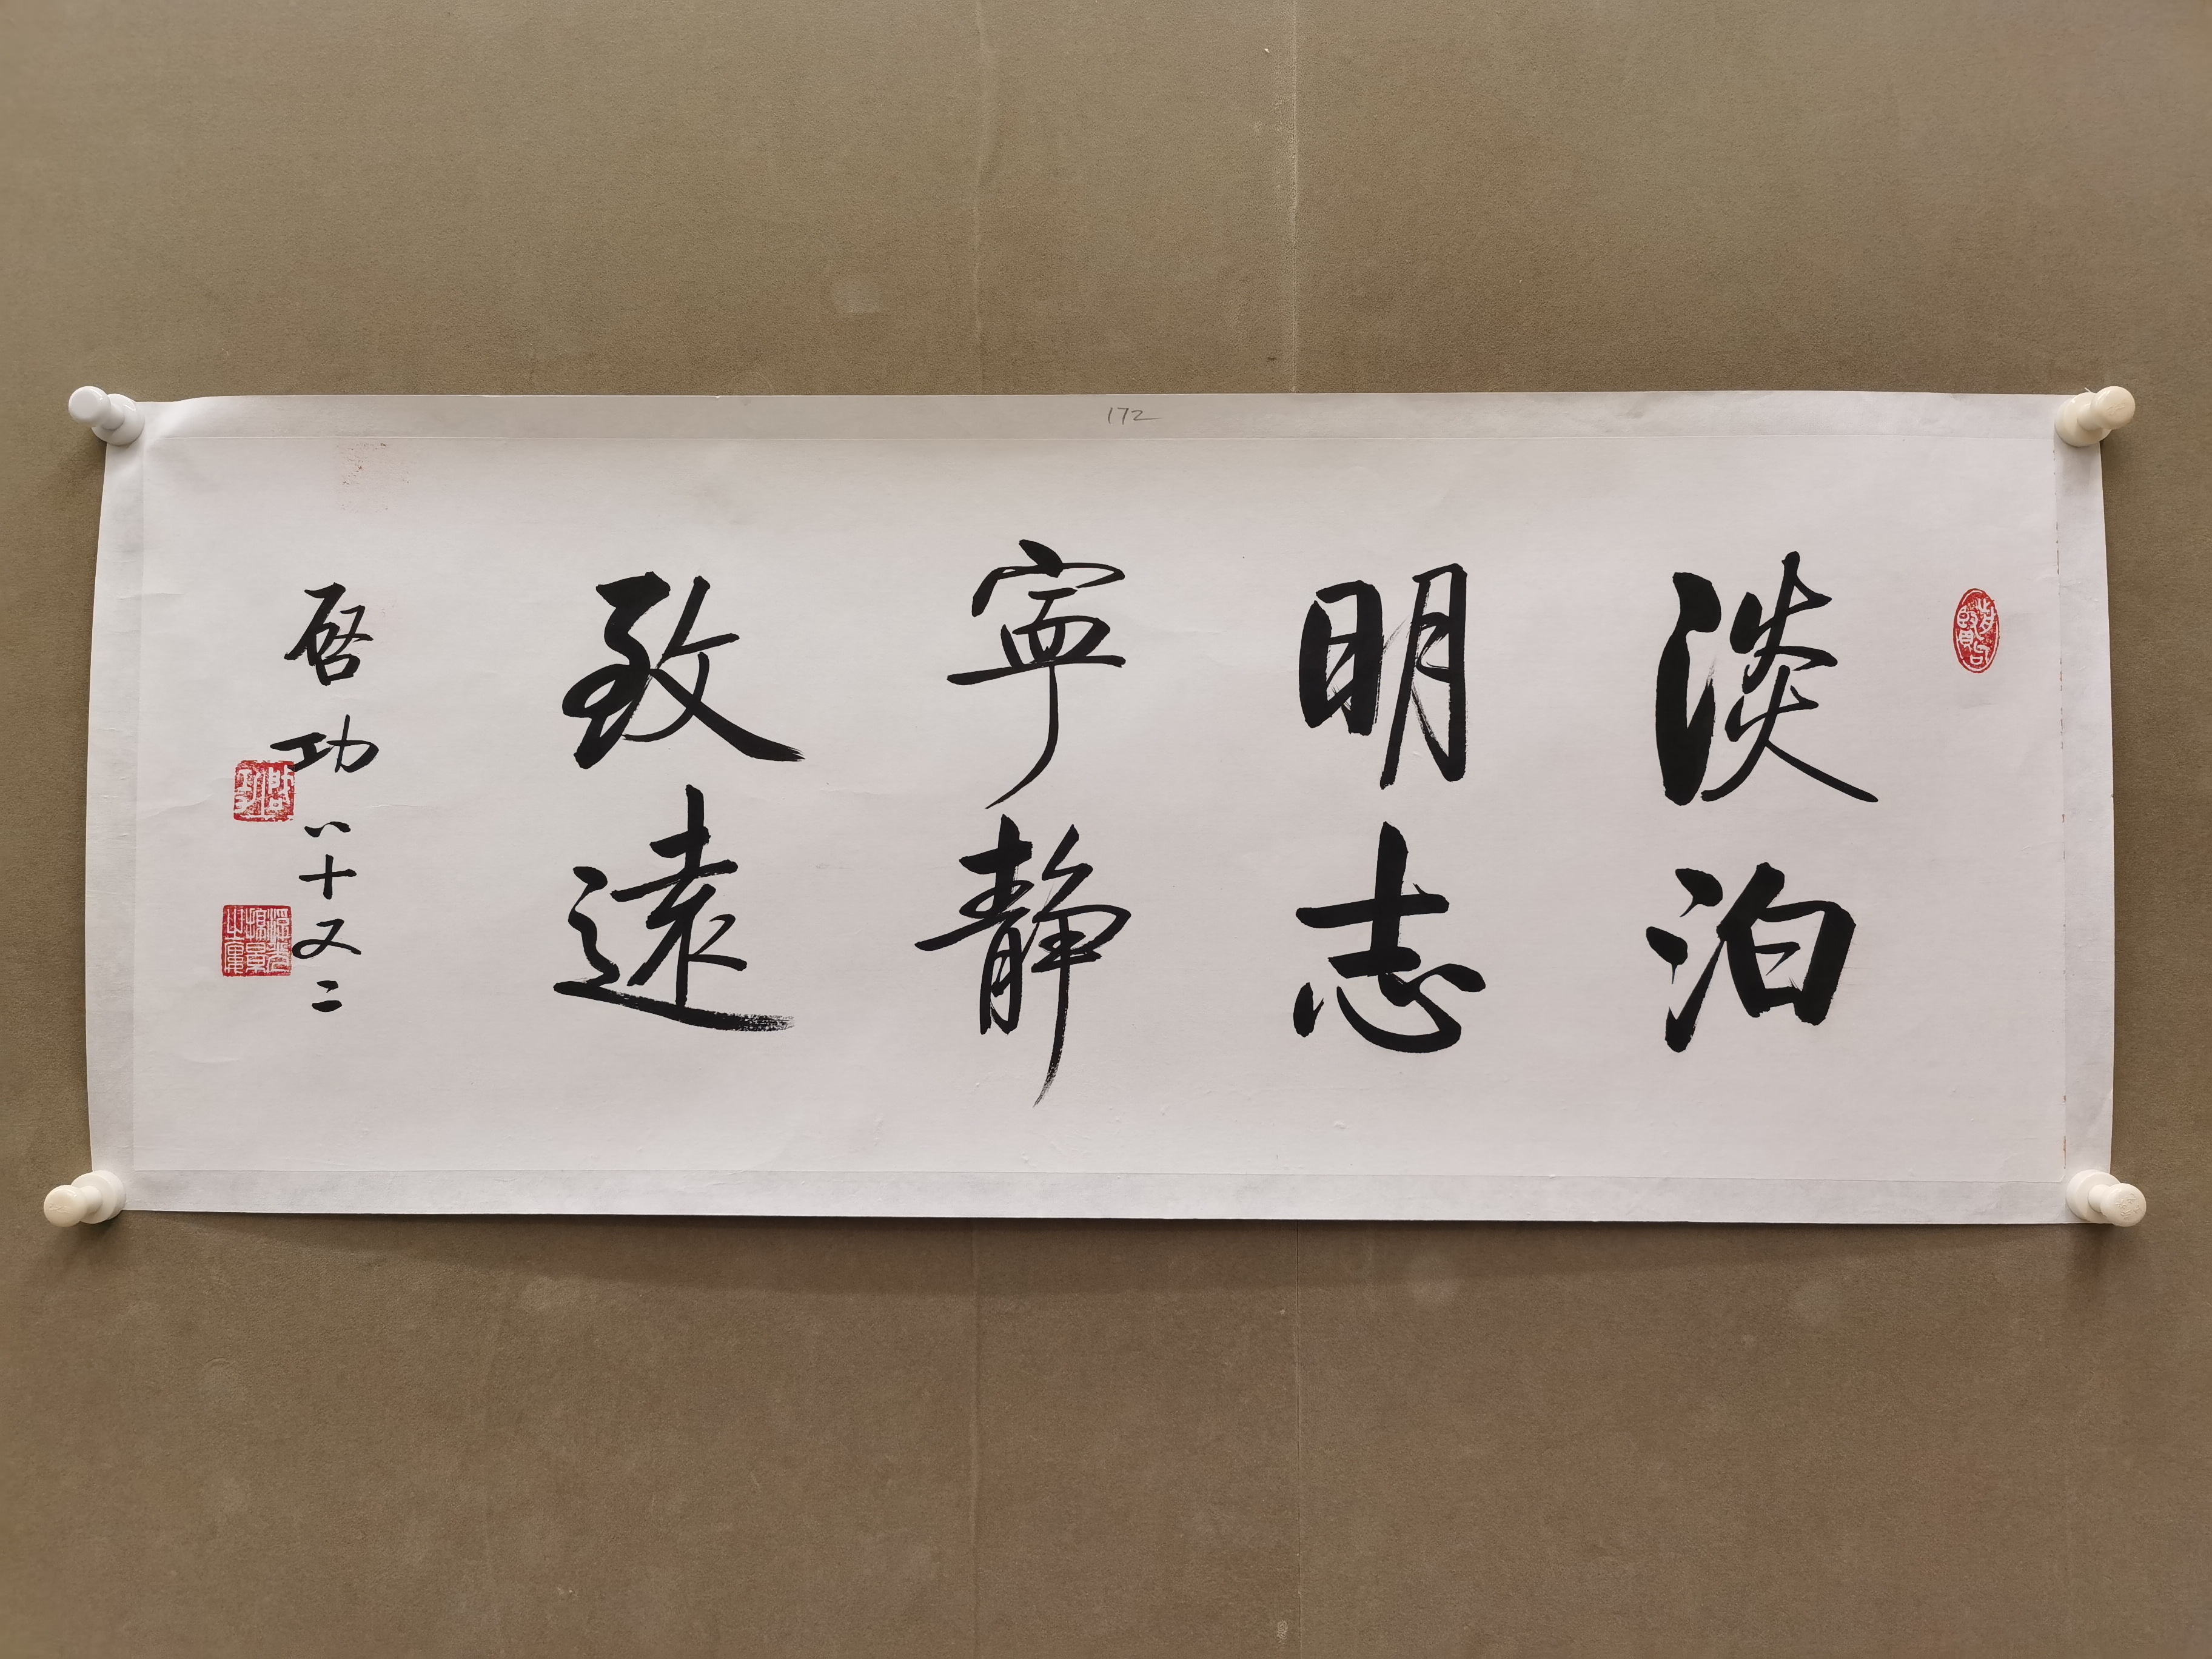 淡泊
明志
寧静
致遠
啓功
八十又二
172